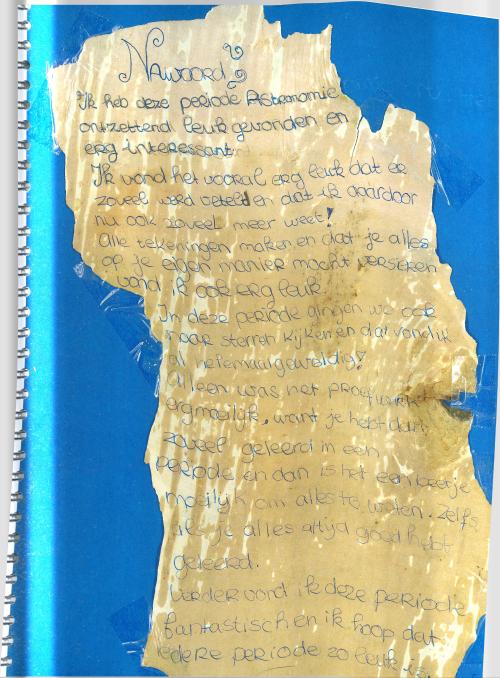 Nawoord
Ik heb deze periode Astronomie
ontzettend leuk gevonden en
erg interessant.
Ik vond het vooral erg leuk dat er
zoveel werd verteld en dat ik daardoor
nu ook zoveel meer weet!
Alle tekeningen maken en dat je alles
op je eigen manier mocht versieren
vond ik ook erg leuk.
In deze periode gingen we ook
naar sterren kijken en dat vond ik
al helemaal geweldig!
Alleen was het proefwerk
erg moeilijk, want je hebt dan
zoveel geleerd in een
periode en dan is het een beetje
moeilijk om alles te weten. Zelfs
als je alles altijd goed hebt
geleerd.
Verder vond ik deze periode
fantastisch en ik hoop dat
iedere periode zo leuk is.